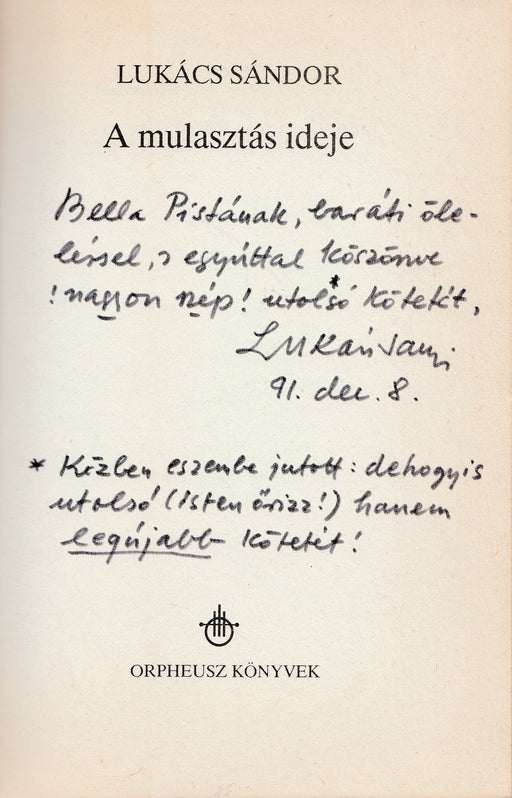 LUKÁCS SÁNDOR
A mulasztás ideje
Bella Pistának, baráti öle-
léssel, s egyúttal köszönve
! nagyon szép! utolsó* kötetét,
Lukács Sanyi
91. dec. 8.
* Közben eszembe jutott: dehogyis
utolsó (isten őrizz!) hanem
legújabb kötetét!
ORPHEUSZ KÖNYVEK